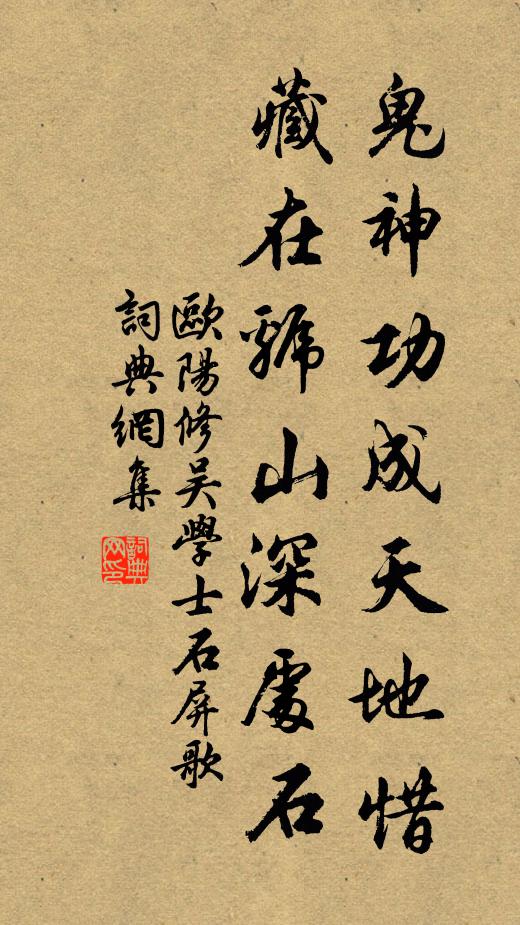 鬼神功成天地惜
藏在虢山深處石
歐陽修吳學士石屏歌
詞典網集
詞典
网印